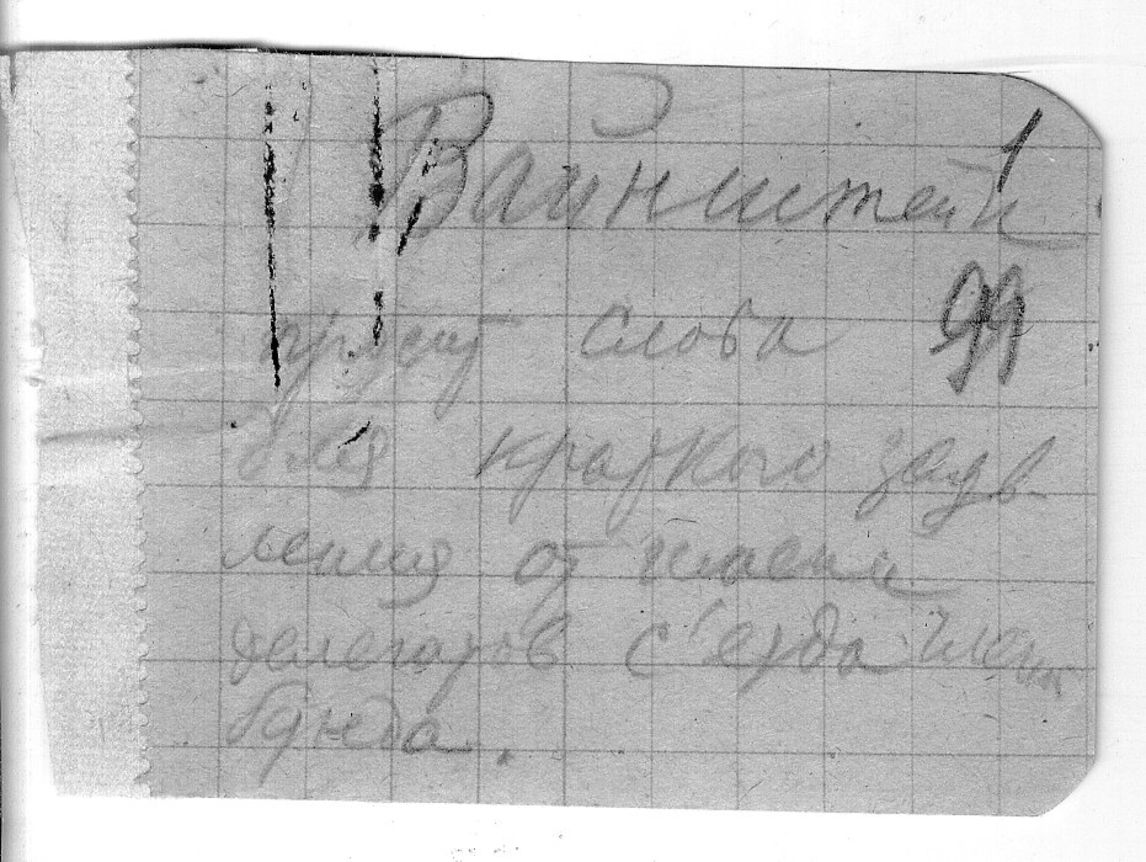 Вайнштейн
просит слова 99
для краткого заяв-
ления от имени
делегатов с'езда член
Бунда.